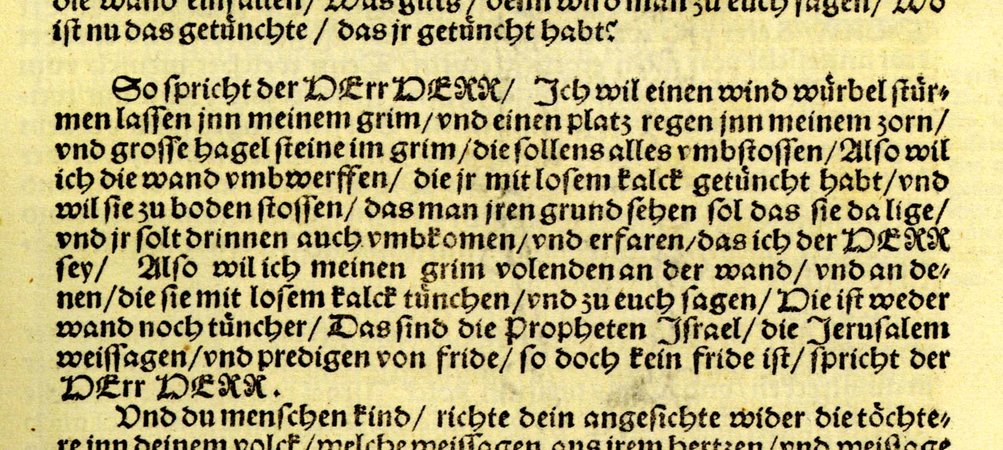 die wand einfallen / Was gilts / denn wird man zu euch sagen / Wo
ist nu das getünchte / das jr getüncht habt?
So spricht der HErr HERR / Ich wil einen wind würbel stür-
men lassen jnn meinem grim / vnd einen platz regen jnn meinem zorn /
vnd grosse hagel steine im grim / die sollens alles vmbstossen / Also wil
ich die wand vmbwerffen / die jr mit losem kalck getüncht habt / vnd
wil sie zu boden stossen / das man jren grund sehen sol das sie da lige /
vnd jr solt drinnen auch vmbkomen / vnd erfaren / das ich der HERR
sey / Also wil ich meinen grim volenden an der wand / vnd an de-
nen / die sie mit losem kalck tünchen / vnd zu euch sagen / Die ist weder
wand noch tüncher / Das sind die Propheten Jsrael / die Jerusalem
weissagen / vnd predigen von fride / so doch kein fride ist / spricht der
HErr HERR.
Vnd du menschen kind / richte dein angesichte wider die töchte-
re jnn deinem volck / welche weissagen aus jrem hertzen / vnd weissage